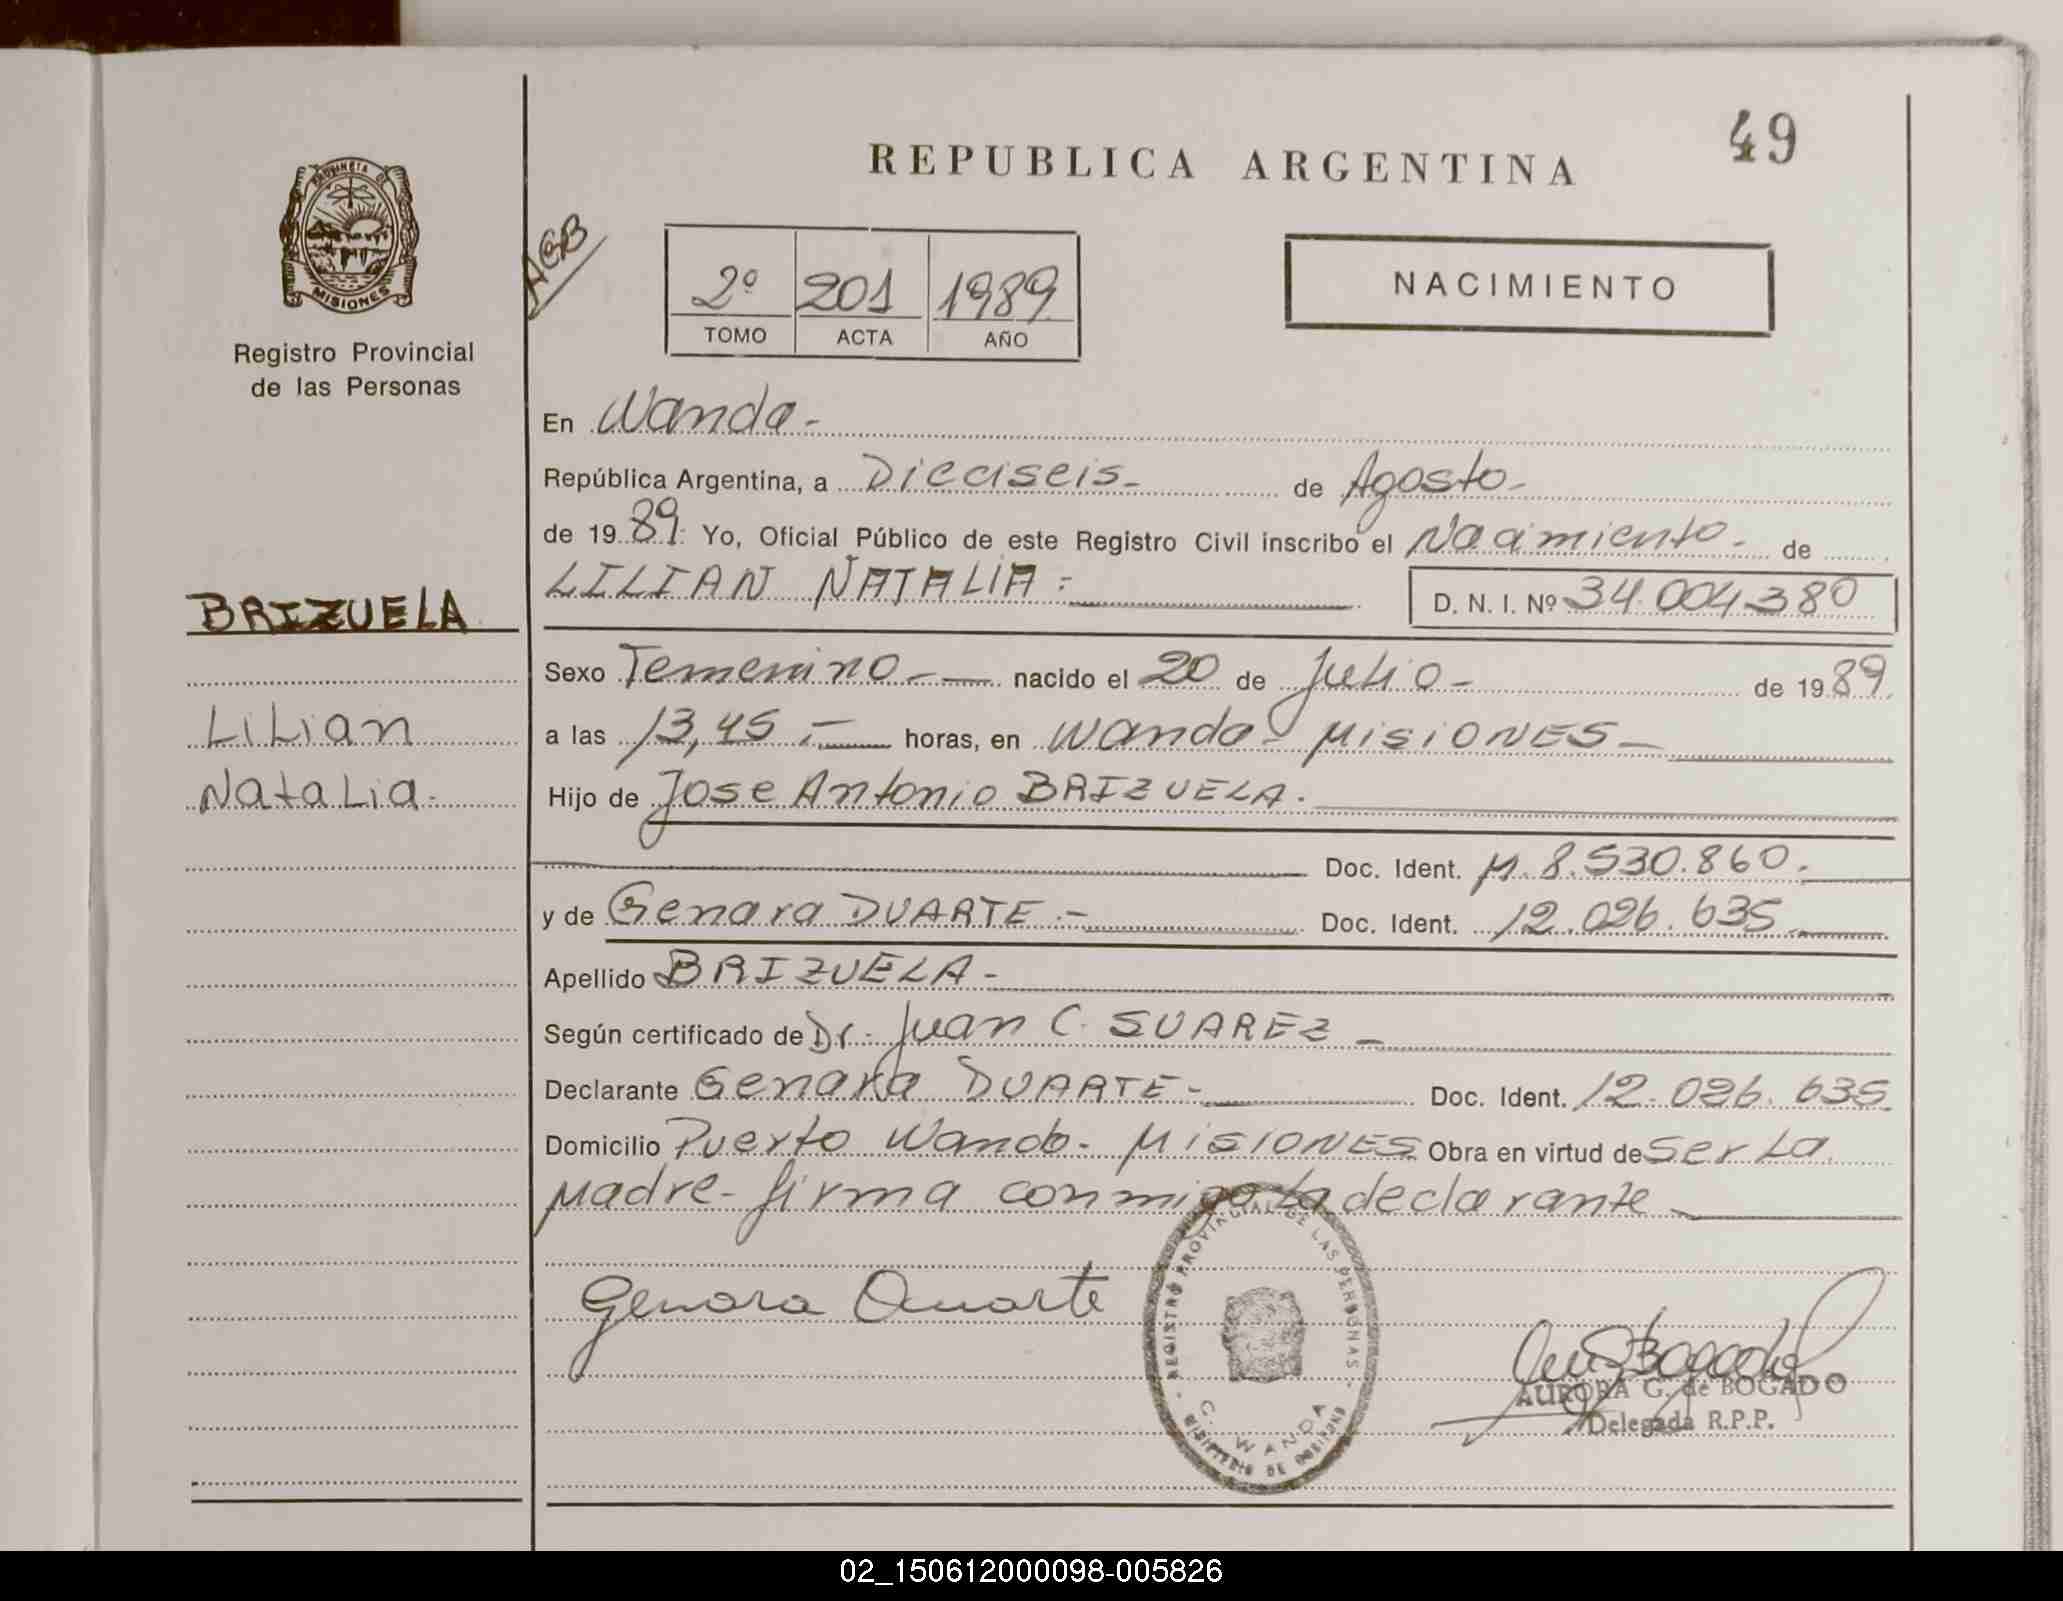 49
REPUBLICA ARGENTINA
PROVINCIA DE
MISIONES
Registro Provincial
de las Personas
AGB
2º 201 1989
TOMO ACTA AÑO
NACIMIENTO
En Wanda-
República Argentina, a Dieciseis- de Agosto-
de 1989. Yo, Oficial Público de este Registro Civil inscribo el Nacimiento- de
LILIAN NATALIA:- D. N. I. Nº 34.004.380
BRIZUELA
Lilian
Natalia.
Sexo Femenino- nacido el 20 de Julio- de 1989.
a las 13,45.- horas, en Wanda- Misiones-
Hijo de Jose Antonio BRIZUELA.
Doc. Ident. M. 8.530.860.
y de Genara DUARTE.- Doc. Ident. 12.026.635-
Apellido BRIZUELA-
Según certificado de Dr. Juan C. SUAREZ-
Declarante Genara DUARTE- Doc. Ident. 12.026.635.
Domicilio Puerto Wanda- Misiones Obra en virtud de ser La
Madre- firma conmigo La declarante-
Genara Duarte
REGISTRO PROVINCIAL DE LAS PERSONAS
C. WANDA
MINISTERIO DE GOBIERNO
AURORA G. de BOGADO
Delegada R.P.P.
02_150612000098-005826